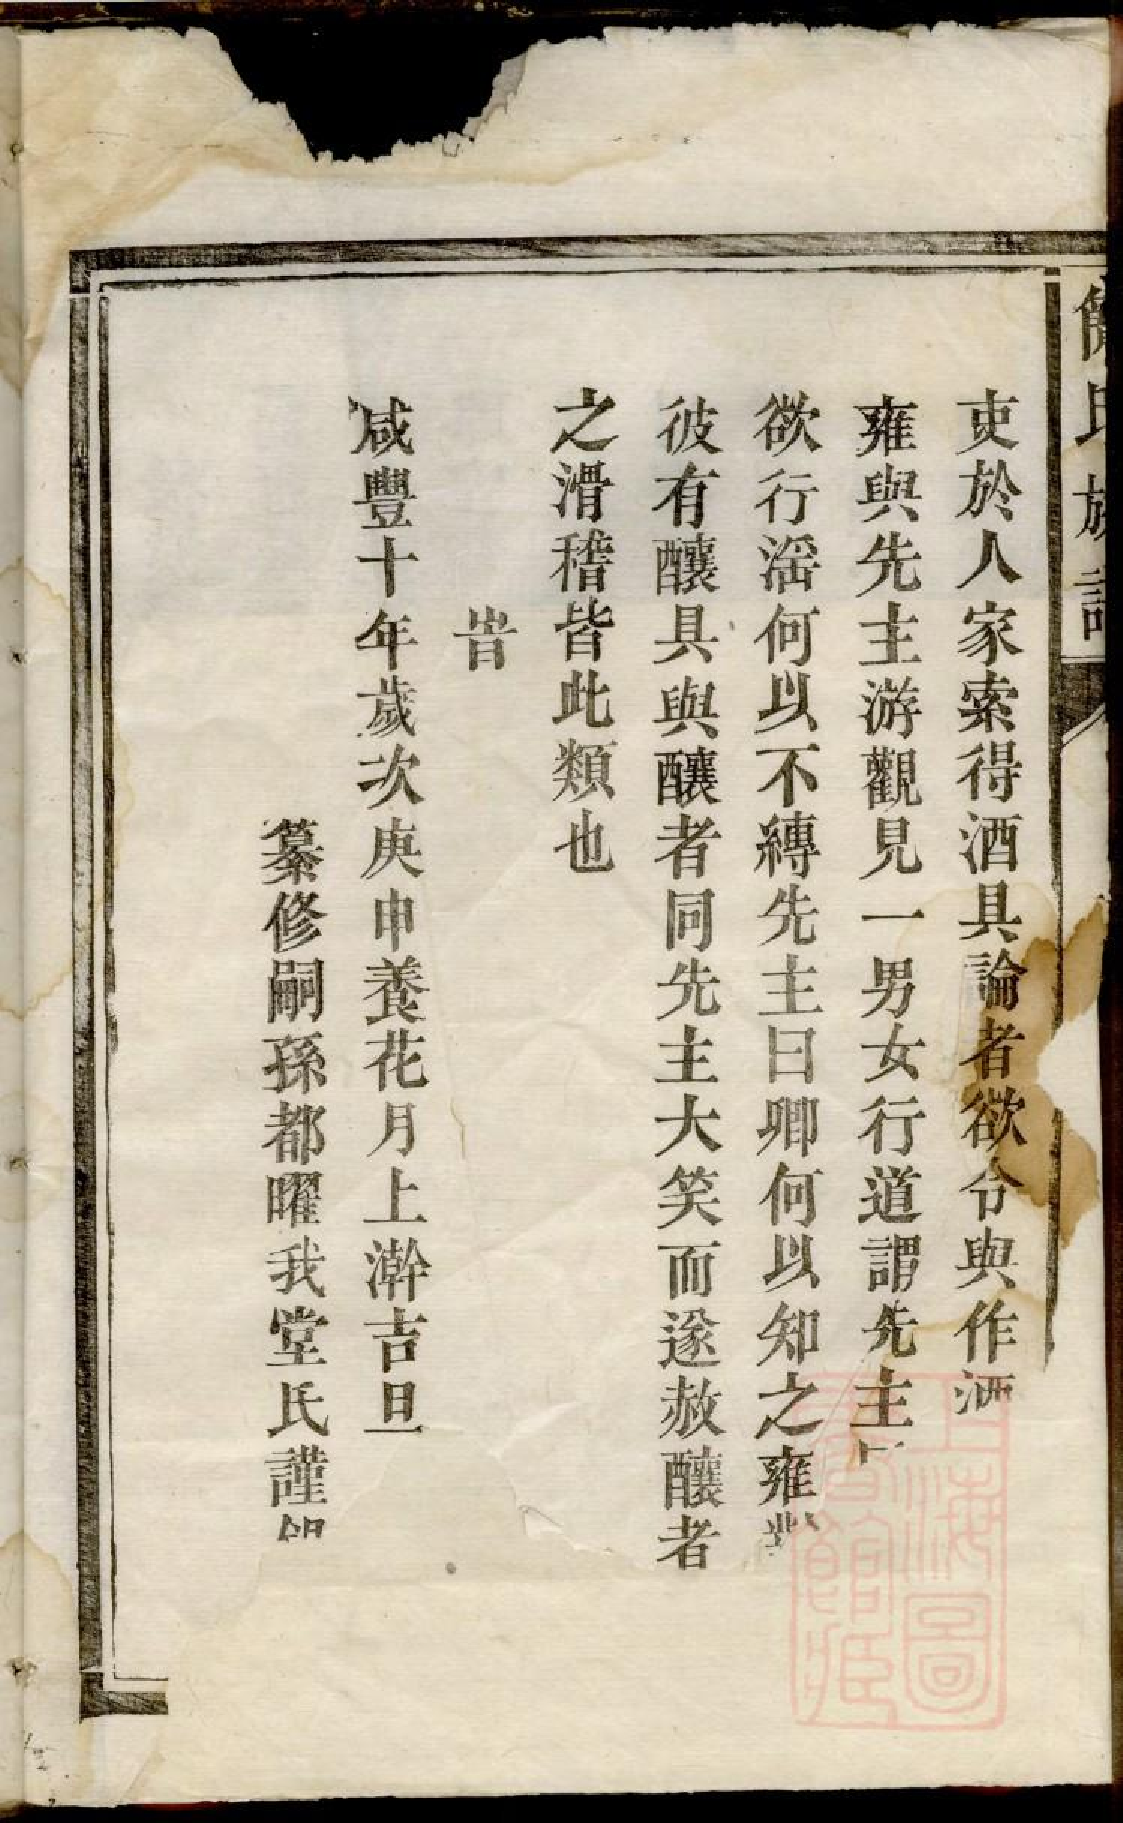 簡氏族譜
吏於人家索得酒具論者欲令與作酒
雍與先主游觀見一男女行道謂先主
欲行滛何以不縛先主曰卿何以知之雍對
彼有釀具與釀者同先主大笑而遂赦釀者
之滑稽皆此類也
旹
咸豐十年歲次庚申養花月上澣吉旦
纂修嗣孫都曜我堂氏謹
上海圖書館藏